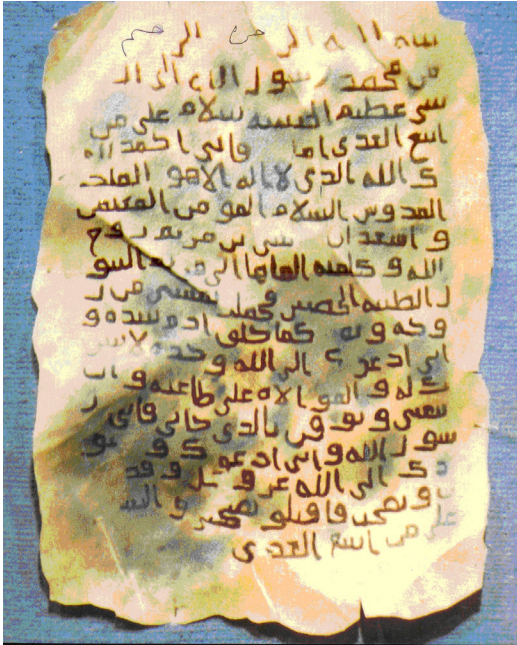 بسم الله الرحمن الرحيم
من محمد رسول الله الى
شي عظيم الحبشة سلام على من
اتبع الهدى اما فاني احمد الي
ك الله الذي لا اله الا هو الملك
القدوس السلام المومن المهيمن
و اشهد ان عيسى بن مريم روح
الله و كلمته القاها الى مريم البتو
ل الطيبة الحصينة فحملت بعيسى من ر
وحه و كما خلق ادم بيده و
اني ادعوك الى الله وحده لا شر
يك له و الموالاة على طاعته و ان
تتبعني و توقن بالذي جاني فاني ر
سول الله و اني ادعوك و جنو
دك الى الله عز و جل و قد
ت و نصحت فاقبلو نصيحتي و السلا
على من اتبع الهدى